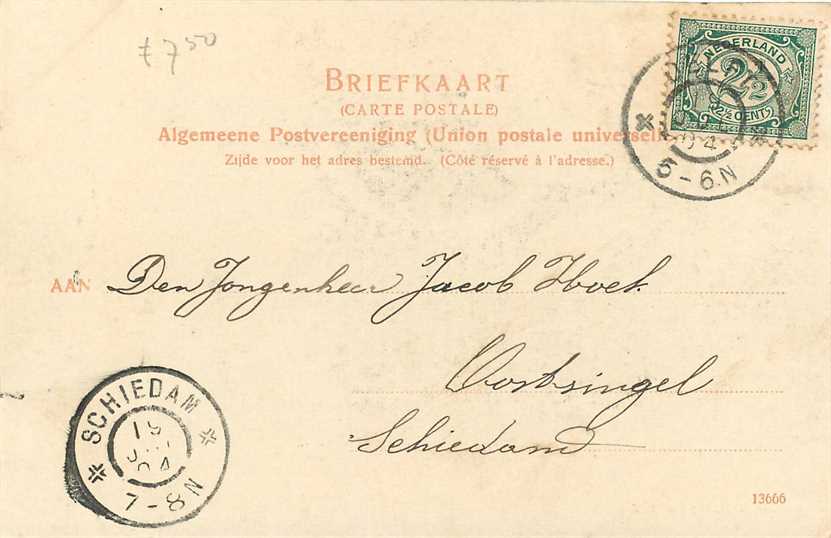 £ 7 50
BRIEFKAART
(CARTE POSTALE)
Algemeene Postvereeniging (Union postale universell
Zijde voor het adres bestemd. (Côté réservé à l'adresse.)
NEDERLAND
2½
2½ CENTS
04
5-6N
AAN Den Jongenheer Jacob Hoek.
Oostsingel
Schiedam
SCHIEDAM
19
04
7-8N
13666